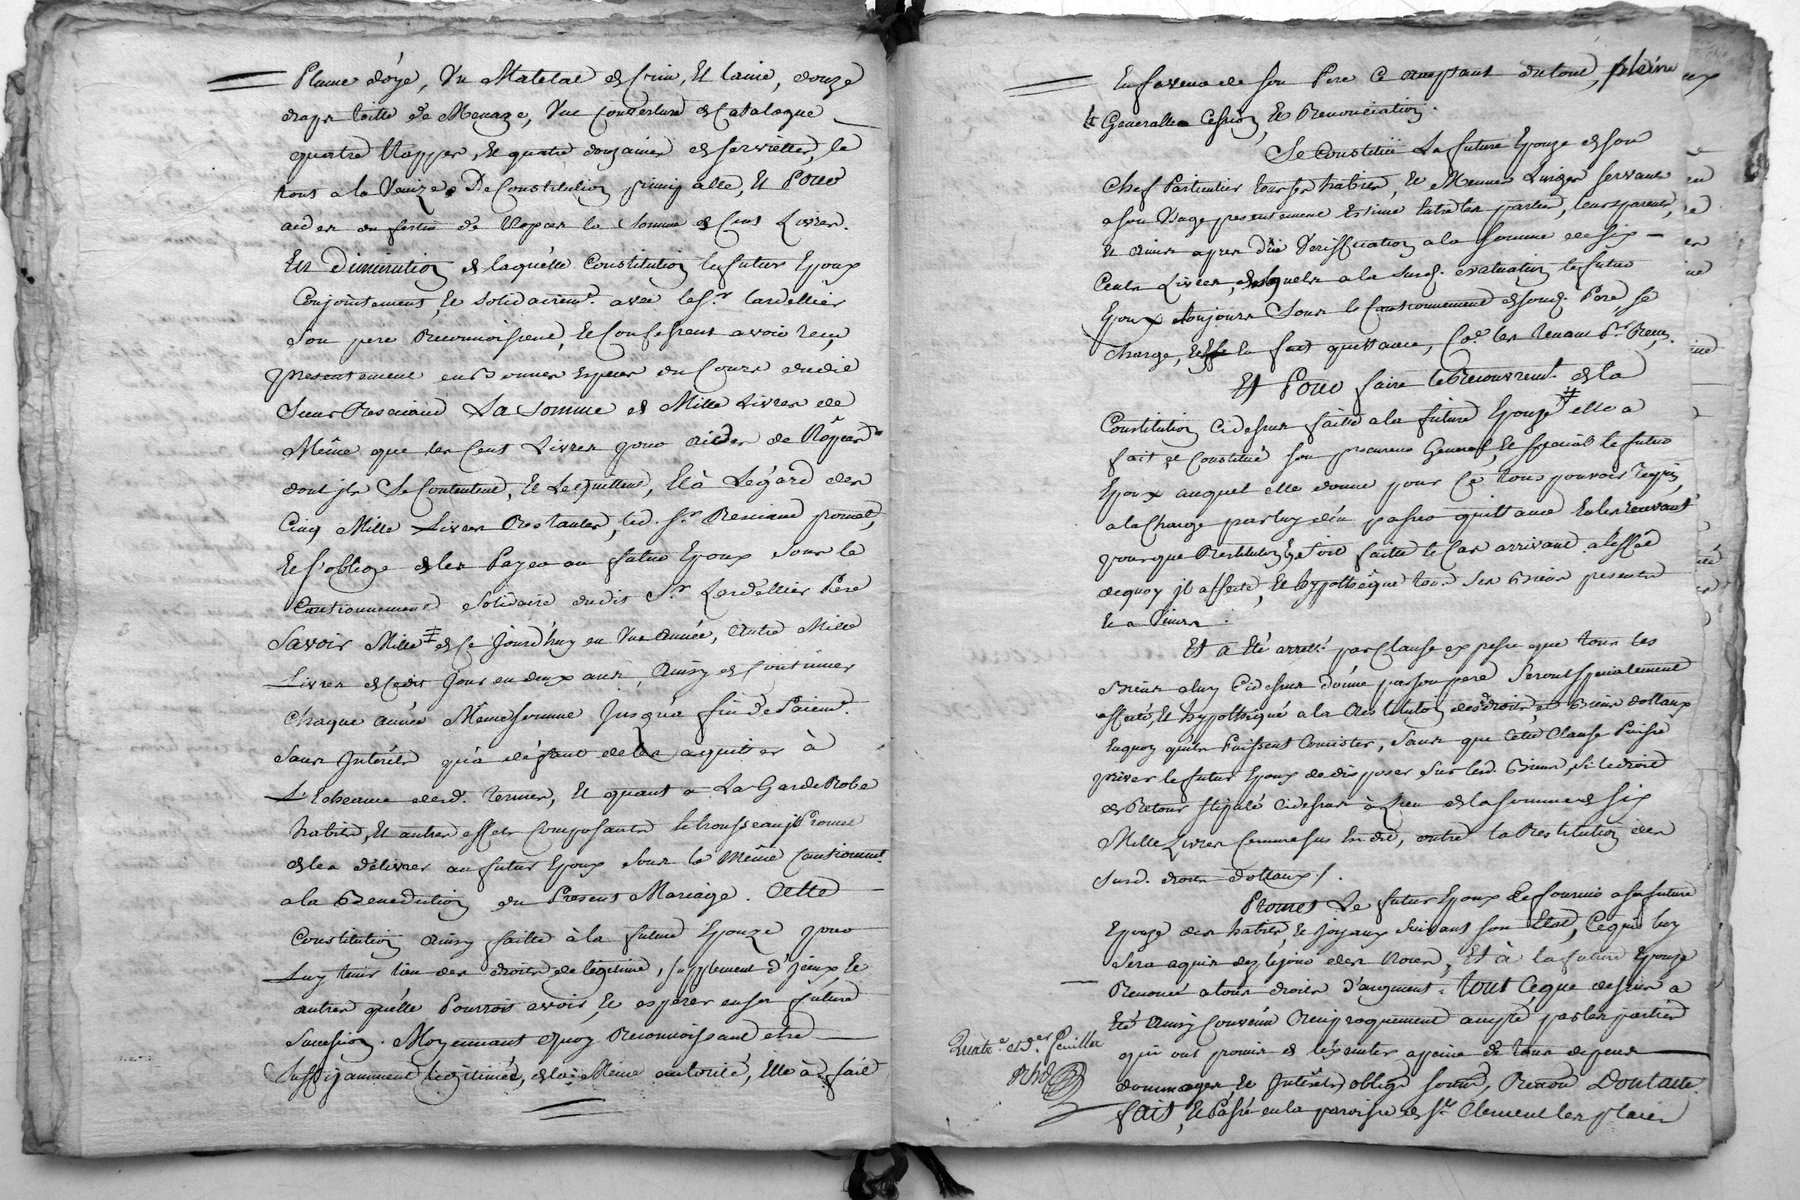 Plume d'oye, Un Matelat de Crin, Et laine, douze
draps toille de Menage, Une Couverture de Catalogne
quatre Nappes, Et quatre douzaines de serviettes, le
tout a la Venize. De Constitution principalle, Et Pour
aider au festin de Nopces la Somme de Cent Livres.
En Diminution de laquelle Constitution le futur Epoux
Conjointement, Et solidairemt. avec le Sr. Lardellier
son pere Reconnoissent, Et Confessent avoir recu,
presentement en bonnes especes du Cours dudit
Sieur La Somme de Mille Livres de
Même que les Cent Livres pour aider de Nôpces
dont jls Se Contentent, Et Le quittent, Et à Légard des
Cinq Mille Livres Restantes, led. Sr. promet,
Et s'oblige de les Payer au futur Epoux sous le
Cautionnement Solidaire dudit Sr. Lardellier Pere
Savoir Mille de Ce Jourd'huy en Une Année, Autre Mille
Livres de Cedit Jour en deux ans, Ainsy de Continuer
Chaque Année Même somme Jusqu'a fin de Paiemt.
Sans Intérêts qu'à défaut de les aquitter à
L'Echeance desd. termes, Et quant a La Garde Robe
habits, Et autres effets Composants le trousseau jl Promet
de les délivrer au futur Epoux sous le Même Cautionnemt.
a la Benediction du Present Mariage. Cette
Constitution Ainsy faitte à la future Epouze pour
Luy tenir lieu des droits de légitime, supplement d'jceux, Et
autres qu'elle Pourroit avoir, Et esperer en sa future
Succession. Moyennant Quoy Reconnoissant être
Suffizamment légitimée, de la Même autorité, Elle à fait
En faveur de son Pere Ce aceptant du tout, pleine
Et Generalle Cession, Et Renonciation.
Se Constitüe La future Epouze de son
Chef Particulier tous ses habits, Et Menus Linges servant
a son Usage presentement Estimé Entre les parties, leurs parents,
Et amis apres dûe Verification a la somme de six
Cents Livres, desquels a la Susd. evaluation le futur
Epoux toujours Sous le Cautionnement de sond. Pere se
Charge, Et En fait quittance, les tenant Pr. Recu.
Et Pour faire le Recouvremt. de la
Constitution Cidessus faitte a la future Epouze elle a
fait, et Constitué son procureur General, Et special le futur
Epoux auquel elle donne pour Ce tous pouvoirs requis,
a la Charge par luy d'en passer quittance En les recevant
pour que Restitution En soit faitte le Cas arrivant a l'effet
dequoy jl affecte, Et hypothêque tous Ses Biens presents
Et a Venir.
Et a Eté arretté par Clause expresse que tous les
Biens a luy Cidessus donné par son pere Seront specialement
affecté, Et hypothéqué a la Restitution desd. droits, et Biens dottaux
Enquoy quils Puissent Consister, sans que Cette Clause Puisse
priver le futur Epoux de disposer Sur lesd. Biens, Ni le droit
de Retour stipulé Cidessus à Lieu de la somme de six
Mille Livres Comme sus Est dit, outre la Restitution des
susd. droits dottaux /.
Promet Le futur Epoux de fournir a sa future
Epouze des habits, Et Joyaux Suivant son Etat, Ce qui luy
sera aquis dez le jour des Noces, Et à la future Epouze
Renoncé a tous droits d'augment. Tout Ceque dessus a
Eté Ainsy Convenu Reciproquement accepté par les parties
qui ont promis de l'executer a peine de tous depens
dommages Et Intérêts, obligé soumis, Renoncé Dont acte
fait, Et Passé en la paroisse de St. Clement les places
Quatre. et dr. feuillet